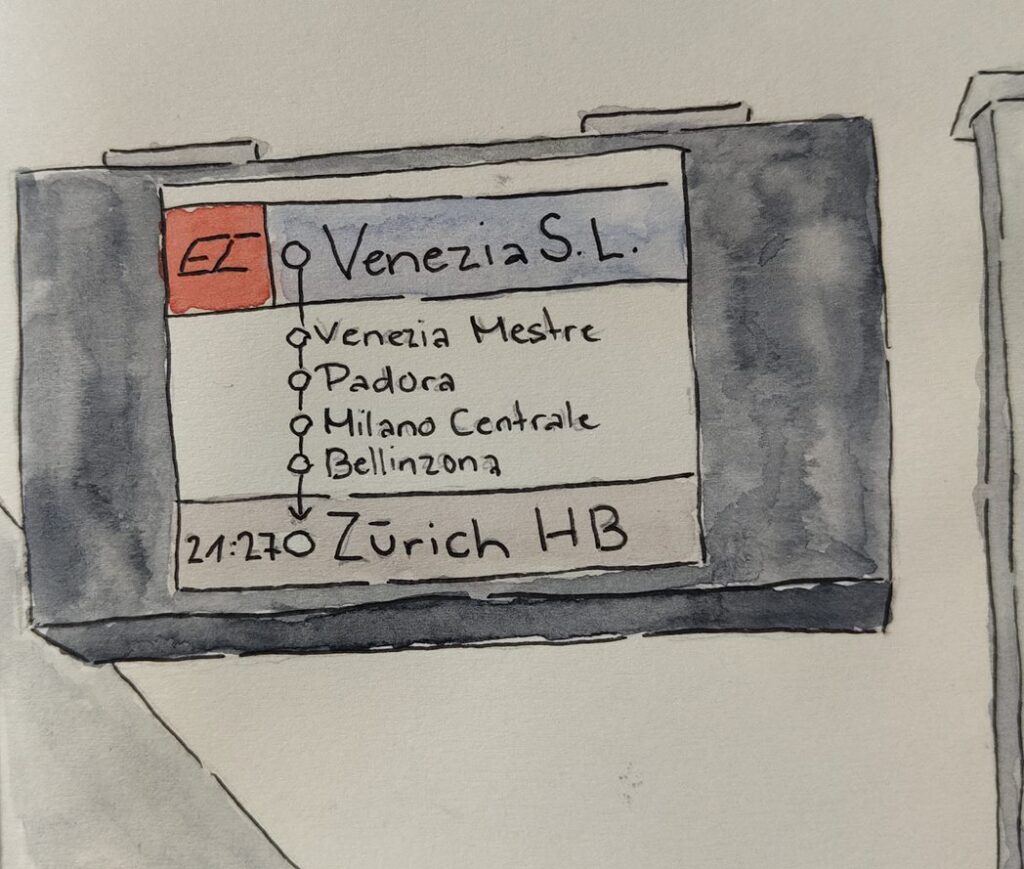 EC
Venezia S. L.
Venezia Mestre
Padova
Milano Centrale
Bellinzona
21:27 Zürich HB